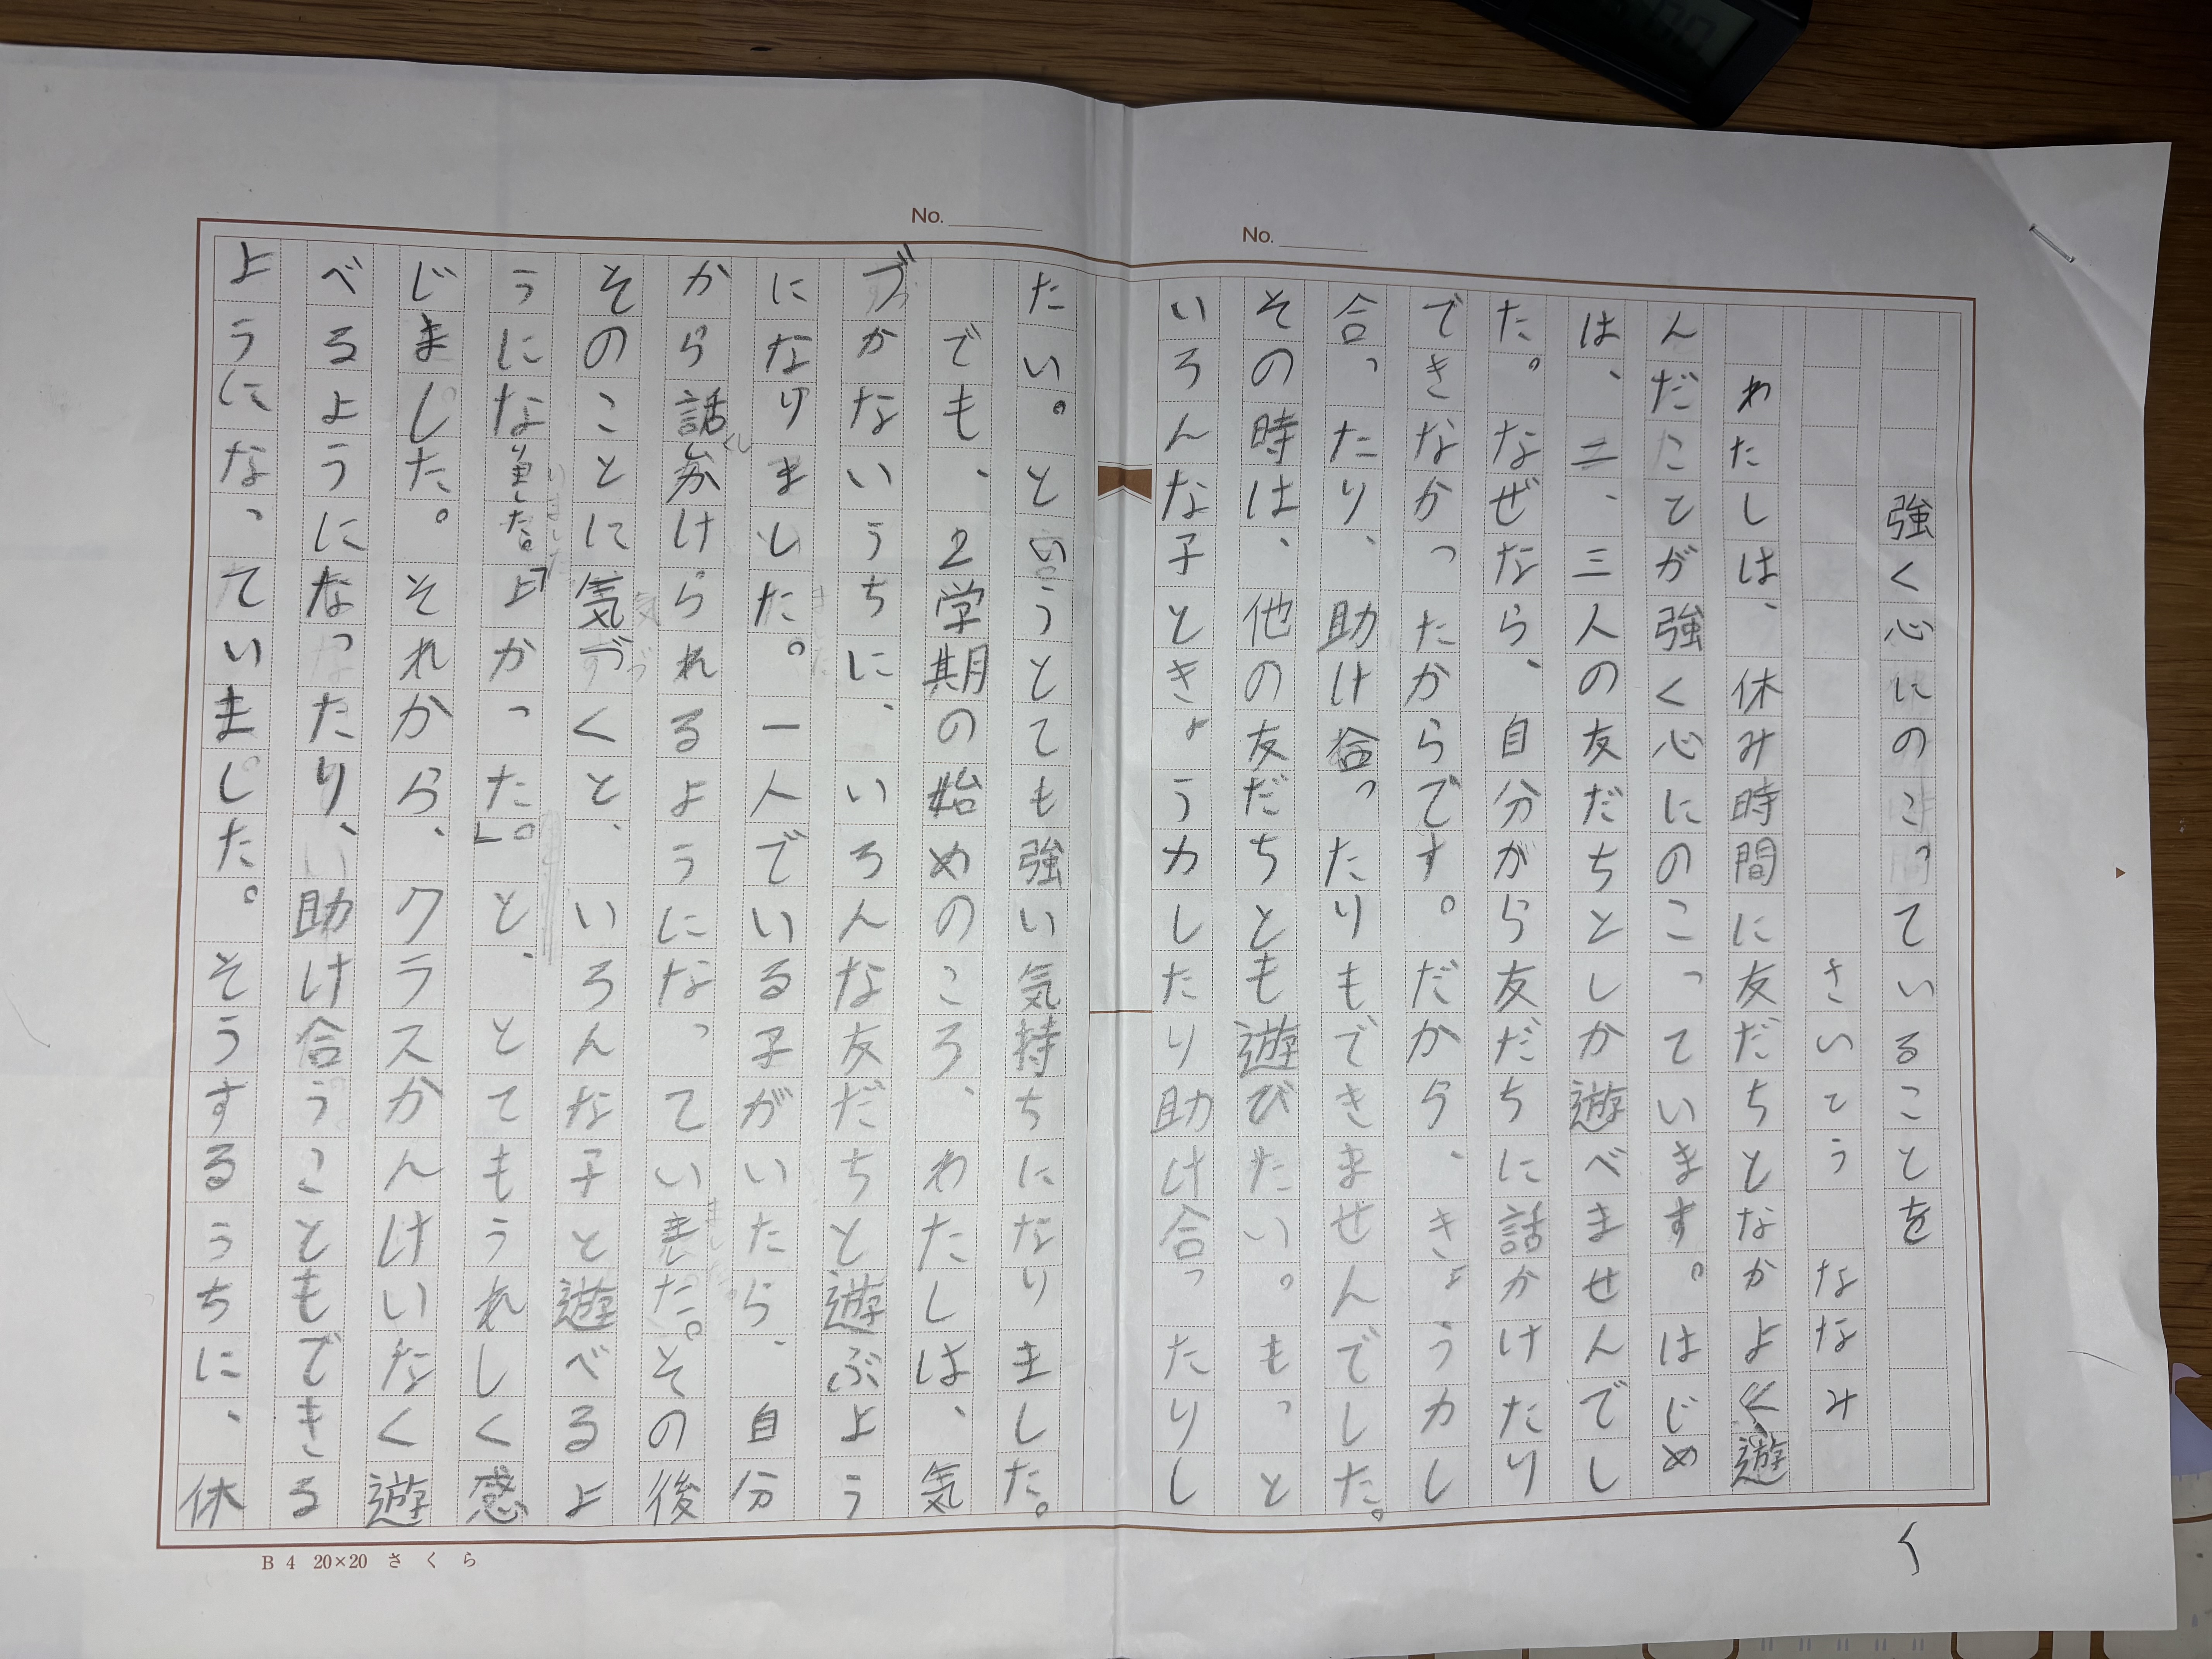 No.
No.
強く心にのこっていることを
さいとう ななみ
わたしは、休み時間に友だちとなかよく遊
んだことが強く心にのこっています。はじめ
は、二、三人の友だちとしか遊べませんでし
た。なぜなら、自分から友だちに話かけたり
できなかったからです。だから、きょうカし
合ったり、助け合ったりもできませんでした。
その時は、他の友だちとも遊びたい。もっと
いろんな子ときょうカしたり助け合ったりし
たい。と言うとても強い気持ちになりました。
でも、2学期の始めのころ、わたしは、気
づかないうちに、いろんな友だちと遊ぶよう
になりました。一人でいる子がいたら、自分
から話かけられるようになっていました。その後
そのことに気づくと、いろんな子と遊べるよ
うになりました。「よかった。」と、とてもうれしく感
じました。それから、クラスかんけいなく遊
べるようになったり、助け合うこともできる
ようになっていました。そうするうちに、休
B4 20×20 さくら